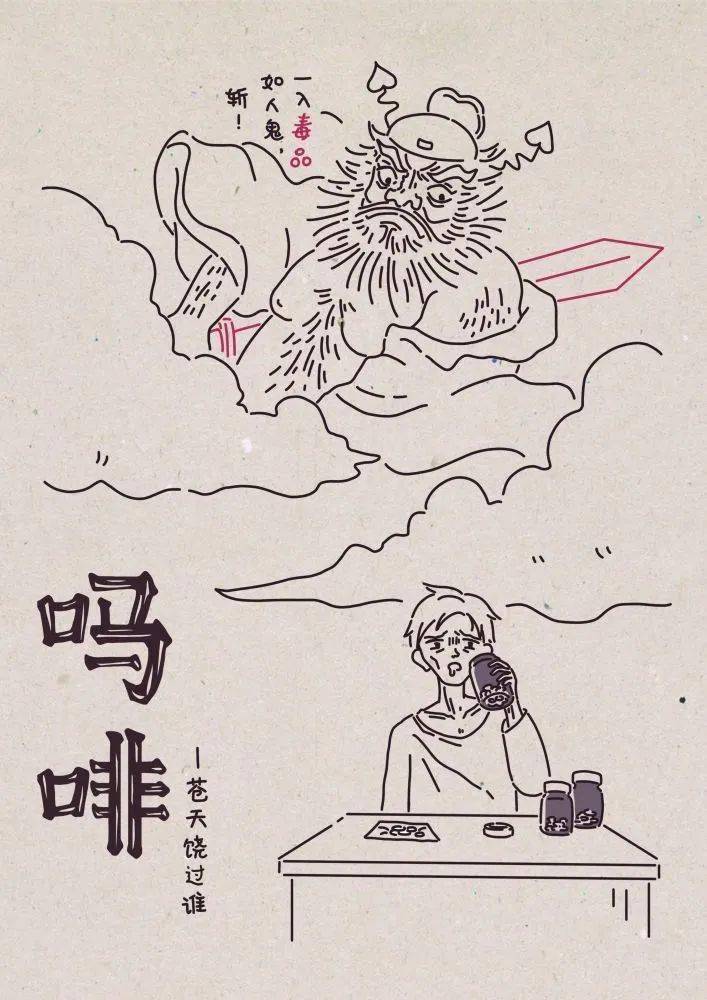 一入毒品
如人鬼，
斩！
吗啡
—苍天饶过谁